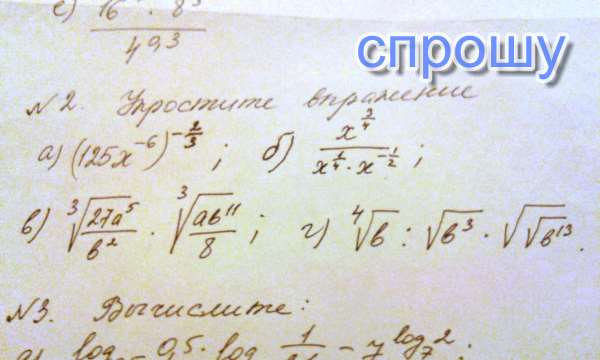 е) 16 · 8
49³
спрошу
№2. Упростите выражение
а) (125x⁻⁶)^(-2/3) ; б) x^(3/4) / (x^(1/4) · x^(-1/2)) ;
в) ∛(27a⁵/b²) · ∛(ab¹¹/8) ; г) ⁴√b : √b³ · √√b¹³.
№3. Вычислите: